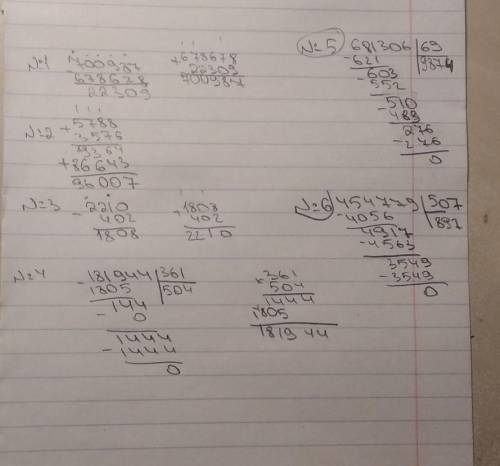 N=1
700987
-678678
22309
+678678
22309
700987
N=2
+5788
3576
9364
+86643
96007
N=3
-2210
402
1808
+1808
402
2210
N=4
-181944 | 361
1805 | 504
144
-0
1444
-1444
0
×361
504
1444
1805
181944
N=5
681306 | 69
-621 | 9874
603
-552
510
-483
276
-276
0
N=6
454779 | 507
-4056 | 897
4917
-4563
3549
-3549
0